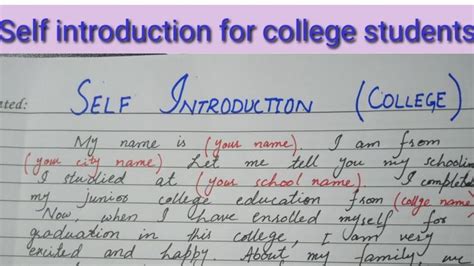 Self introduction for college students
ated:
SELF INTRODUCTION (COLLEGE)
My name is (your name). I am from
(your city name) Let me tell you my schoolin
I studied at (your school name). I complete
my junior college education from (collge name
Now, when I have enrolled myself for
graduation in this college, I am very
excited and happy. About my family, we